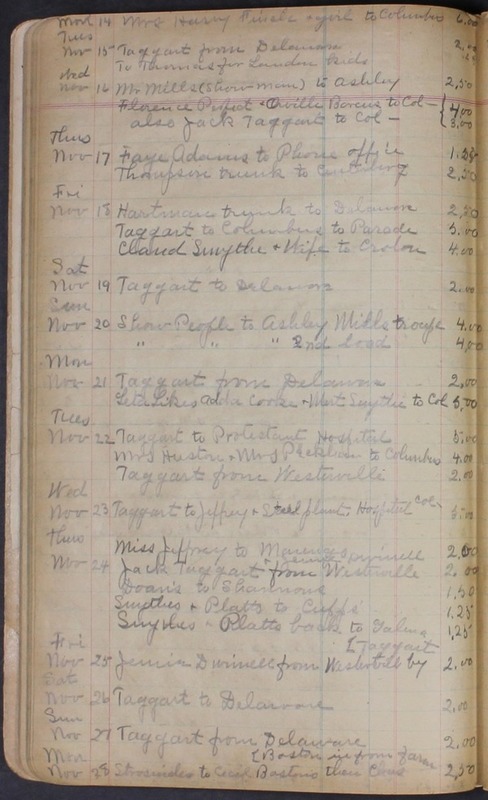 Mon 14 Mrs Harry Fissele + girl to Columbus 6.00
Tues
Nov 15 Taggart from Delaware 2.00
To Thomas for Landon
Wed
Nov 16 Mr Mills (Show-man) to Ashley 2,50
Florence + Orville Borcus to Col — { 4.00
also Jack Taggart to Col — 3.00
Thurs
Nov 17 Faye Adams to Phone office
Thompson trunk to Centerburg 2,50
Fri
Nov 18 Hartman trunk to Delaware 2,50
Taggart to Columbus to Parade 5.00
Claud Smythe + Wife to Croton 4.00
Sat
Nov 19 Taggart to Delaware 2.00
Sun
Nov 20 Show People to Ashley Mills troupe 4.00
" " " 2nd load 4,00
Mon
Nov 21 Taggart from Delaware 2,00
Adda Cooke + Mart Smythe to Col 5,00
Tues
Nov 22 Taggart to Protestant Hospital 5.00
Mrs Huston + Mrs to Columbus 4.00
Taggart from Westerville 2.00
Wed
Nov 23 Taggart to Jeffrey + Steel plant, Hospital Col- 5.00
Thurs
Miss Jeffrey to Marengo 2.00
Nov 24 Jack Taggart from Westerville 2.00
Doaris to Shannons 1,50
Smythes + Platts to Cuffs 1,25
Smythes + Platts back to 1,25
Fri { Taggart
Nov 25 Jennie Dwinell from Westerville by 2.00
Sat
Nov 26 Taggart to Delaware 2,00
Sun
Nov 27 Taggart from Delaware 2,00
Mon { Baston from farm
Nov 28 to Cecil Bastons then 2,50